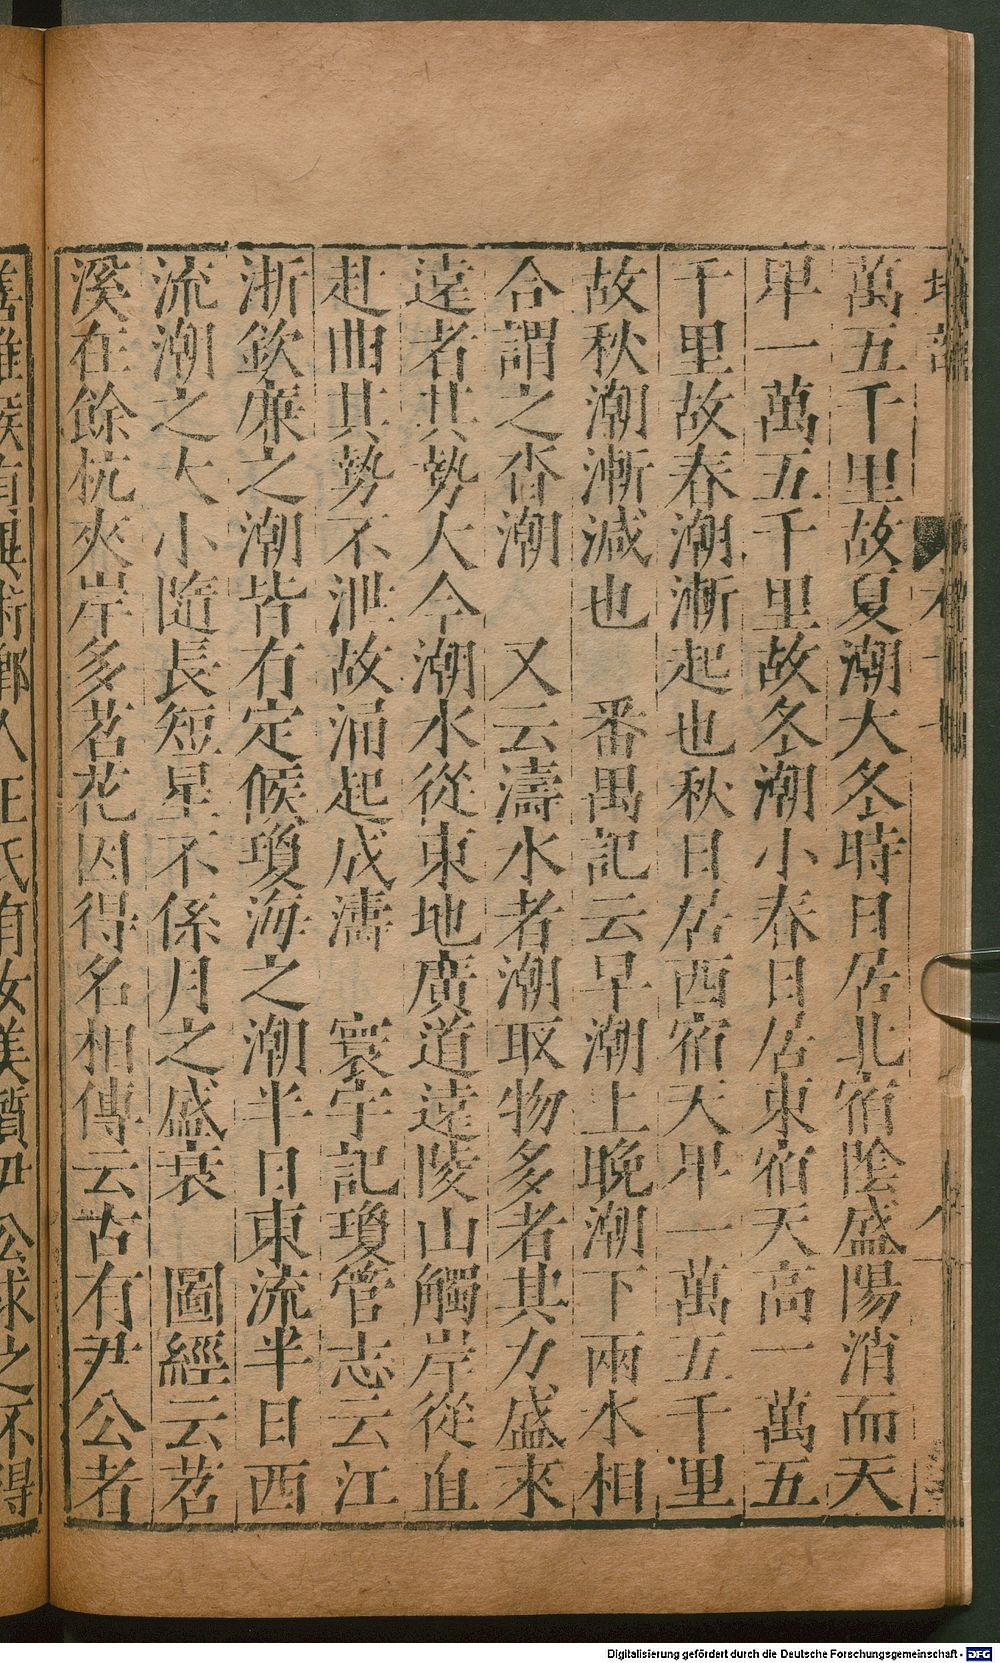 萬五千里故夏潮大冬時日居北宿陰盛陽消而天
卑一萬五千里故冬潮小春日居東宿天高一萬五
千里故春潮漸起也秋日居西宿天卑一萬五千里
故秋潮漸減也　番禺記云早潮上晚潮下兩水相
合謂之沓潮　又云濤水者潮取物多者其力盛來
遠者其勢大今潮水從東地廣道遠陵山觸岸從直
赴曲其勢不泄故涌起成濤　寰宇記瓊管志云江
浙欽廉之潮皆有定候瓊海之潮半日東流半日西
流潮之大小隨長短星不係月之盛衰　圖經云苕
溪在餘杭夾岸多苕花因得名相傳云古有尹公者
人王氏有女美質尹公求之不得
Digitalisierung gefördert durch die Deutsche Forschungsgemeinschaft - DFG